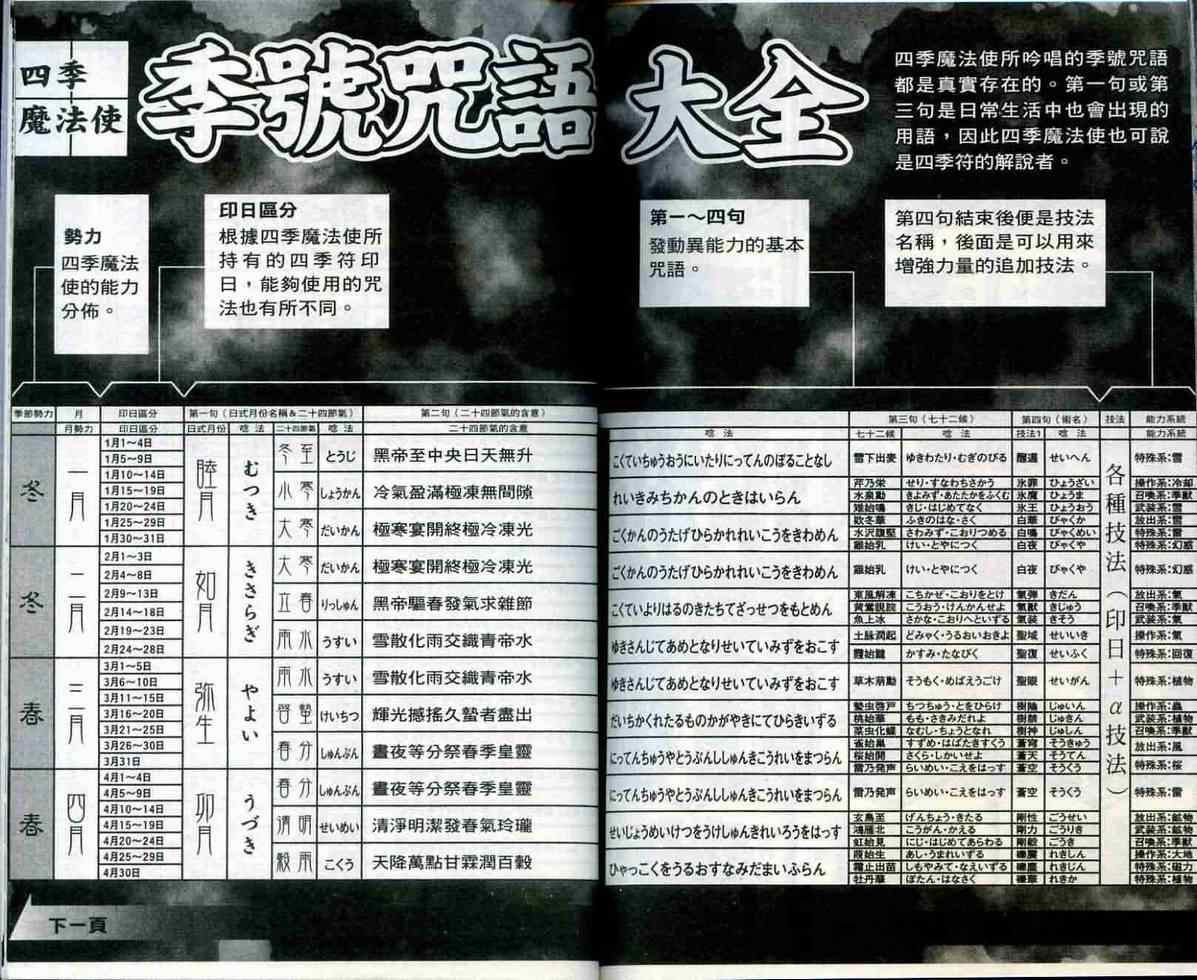 四季
魔法使
季號咒語大全
四季魔法使所吟唱的季號咒語
都是真實存在的。第一句或第
三句是日常生活中也會出現的
用語，因此四季魔法使也可說
是四季符的解說者。
勢力
四季魔法
使的能力
分佈。
印日區分
根據四季魔法使所
持有的四季符印
日，能夠使用的咒
法也有所不同。
第一～四句
發動異能力的基本
咒語。
第四句結束後便是技法
名稱，後面是可以用來
增強力量的追加技法。
季節勢力 月 印日區分 第一句（日式月份名稱＆二十四節氣） 第二句（二十四節氣的含意） 第三句（七十二候） 第四句（術名） 技法 能力系統
月勢力 印日區分 日式月份 唸法 二十四節氣 唸法 二十四節氣的含意 唸法 七十二候 唸法 技法1 唸法 能力系統
冬 一月 睦月 むつき
1月1～4日
1月5～9日
1月10～14日
1月15～19日
1月20～24日
1月25～29日
1月30～31日
冬至 とうじ 黑帝至中央日天無升 こくていちゅうおうにいたりにってんのぼることなし
小寒 しょうかん 冷氣盈滿極凍無間隙 れいきみちかんのときはいらん
大寒 だいかん 極寒宴開終極冷凍光 ごくかんのうたげひらかれれいこうをきわめん
雪下出麥 ゆきわたり・むぎのびる せいへん 特殊系：雪
芹乃栄 せり・すなわちさかう 氷罪 ひょうざい 操作系：冷却
水泉動 きよみず・あたたかをふくむ 氷魔 ひょうま 召喚系：季獸
雉始鳴 きじ・はじめてなく 氷王 ひょうおう 武装系：雪
欵冬華 ふきのはな・さく 白華 びゃくか 放出系：雪
水沢腹堅 さわみず・こおりつめる 白鳴 びゃくめい 特殊系：雪
雞始乳 けい・とやにつく 白夜 びゃくや 特殊系：幻惑
冬 二月 如月 きさらぎ
2月1～3日
2月4～8日
2月9～13日
2月14～18日
2月19～23日
2月24～28日
大寒 だいかん 極寒宴開終極冷凍光 ごくかんのうたげひらかれれいこうをきわめん
立春 りっしゅん 黑帝驅春發氣求雜節 こくていよりはるのきたちてざっせつをもとめん
雨水 うすい 雪散化雨交織青帝水 ゆきさんじてあめとなりせいていみずをおこす
雞始乳 けい・とやにつく 白夜 びゃくや 特殊系：幻惑
東風解凍 こちかぜ・こおりをとけ 氣弾 きだん 放出系：氣
黄鶯睍睆 こうおう・けんかんせよ 氣獣 きじゅう 召喚系：季獸
魚上氷 さかな・こおりへといずる 氣装 きそう 武装系：氣
土脉潤起 どみゃく・うるおいおきよ 聖域 せいいき 操作系：氣
霞始靆 かすみ・たなびく 聖復 せいふく 特殊系：回復
春 三月 弥生 やよい
3月1～5日
3月6～10日
3月11～15日
3月16～20日
3月21～25日
3月26～30日
3月31日
雨水 うすい 雪散化雨交織青帝水 ゆきさんじてあめとなりせいていみずをおこす
啓蟄 けいちつ 輝光撼搖久蟄者盡出 だいちかくれたるものかがやきにてひらきいずる
春分 しゅんぶん 晝夜等分祭春季皇靈 にってんちゅうやとうぶんししゅんきこうれいをまつらん
草木萠動 そうもく・めばえうごけ 聖眼 せいがん 特殊系：植物
蟄虫啓戸 ちつちゅう・とをひらけ じゅいん 操作系：蟲
桃始華 もも・さきみだれよ じゅきん 武装系：植物
菜虫化蝶 なむし・ちょうとなれ 樹神 じゅしん 召喚系：季獸
雀始巣 すずめ・はばたきすくう 蒼穹 そうきゅう 放出系：風
桜始開 さくら・しかいせよ 蒼天 そうてん 特殊系：桜
雷乃発声 らいめい・こえをはっす 蒼空 そうくう
春 四月 卯月 うづき
4月1～4日
4月5～9日
4月10～14日
4月15～19日
4月20～24日
4月25～29日
4月30日
春分 しゅんぶん 晝夜等分祭春季皇靈 にってんちゅうやとうぶんししゅんきこうれいをまつらん
清明 せいめい 清淨明潔發春氣玲瓏 せいじょうめいけつをうけしゅんきれいろうをはっす
穀雨 こくう 天降萬點甘霖潤百穀 ひゃっこくをうるおすなみだまいふらん
雷乃発声 らいめい・こえをはっす 蒼空 そうくう 特殊系：雷
玄鳥至 げんちょう・きたる 剛性 ごうせい 放出系：鉱物
鴻雁北 こうがん・かえる 剛力 ごうりき 武装系：鉱物
虹始見 にじ・はじめてあらわる 剛毅 ごうき 召喚系：季獸
葭始生 あし・うまれいずる れきしん 操作系：大地
霜止出苗 しもやみて・なえいずる れきじん 特殊系：磁力
牡丹華 ぼたん・はなさく 礫華 れきか 特殊系：植物
各種技法（印日＋α技法）
下一頁